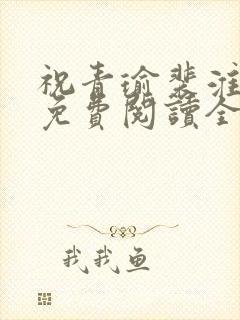 祝青瑜裴淮
免費閱讀全
我我魚